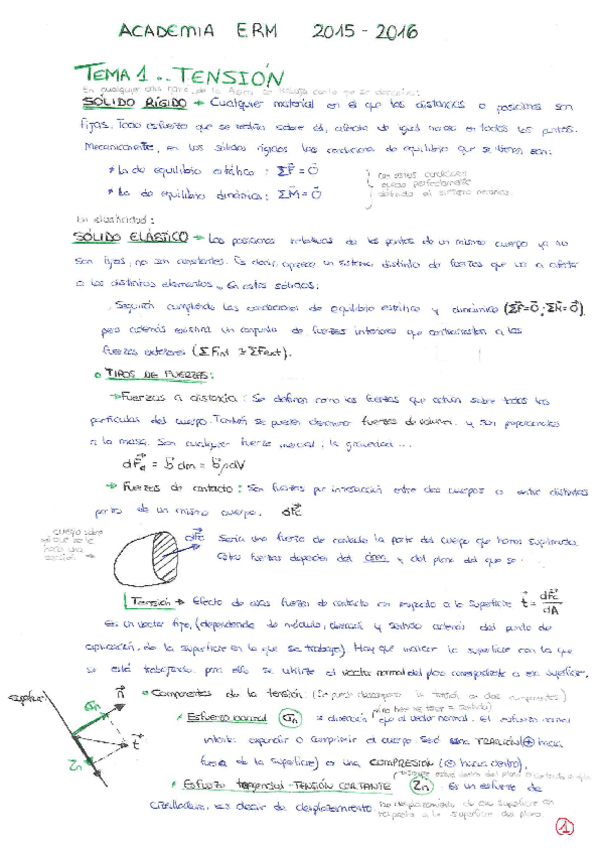 ACADEMIA ERM 2015 - 2016
TEMA 1.. TENSIÓN
En cualquier otra rama de la física se trabaja con lo que se denomina:
SÓLIDO RÍGIDO → Cualquier material en el que las distancias o posiciones son
fijas. Todo esfuerzo que se realiza sobre él, afecta de igual manera en todos los puntos.
Mecánicamente, en los sólidos rígidos las condiciones de equilibrio que se tienen son:
* La de equilibrio estático : ΣF⃗ = 0⃗
* La de equilibrio dinámico : ΣM⃗ = 0⃗
Con estas condiciones
queda perfectamente
definido el sistema mecánico.
En elasticidad :
SÓLIDO ELÁSTICO → Las posiciones relativas de los puntos de un mismo cuerpo ya no
son fijas, no son constantes. Es decir, aparece un sistema distinto de fuerzas que va a afectar
a los distintos elementos. En estos sólidos:
Seguirán cumpliendo las condiciones de equilibrio estático y dinámico (ΣF⃗=0⃗ ; ΣM⃗=0⃗)
pero además existirá un conjunto de fuerzas interiores que contrarrestan a las
fuerzas exteriores (ΣFint ΣFext).
• TIPOS DE FUERZAS:
→ Fuerzas a distancia : Se definen como las fuerzas que actúan sobre todas las
partículas del cuerpo. También se pueden denominar fuerzas de volumen y son proporcionales
a la masa. Son cualquier fuerza inercial, la gravedad ...
dF⃗d = b⃗ dm = b⃗ρdV
→ Fuerzas de contacto : Son fuerzas por interacción entre dos cuerpos o entre distintas
partes de un mismo cuerpo. dF⃗c
cuerpo sobre
el que se le
hace una
sección →
dF⃗c Sería una fuerza de contacto la parte del cuerpo que hemos suprimido.
Estas fuerzas dependen del área y del plano del que se
Tensión → Efecto de esas fuerzas de contacto con respecto a la superficie t⃗ = dF⃗c/dA
Es un vector fijo, (dependiendo de módulo, dirección y sentido además del punto de
aplicación, de la superficie en la que se trabaja). Hay que indicar la superficie con la que
se está trabajando para ello se utiliza el vector normal del plano correspondiente a esa superficie.
superficie
σn n⃗ t⃗ τn
• Componentes de la tensión (Se puede descomponer la tensión en dos componentes)
* Esfuerzo normal (σn) → dirección que el vector normal. El esfuerzo normal
intenta expandir o comprimir el cuerpo. Será una TRACCIÓN (⊕ hacia
fuera de la superficie) o una COMPRESIÓN (⊖ hacia dentro).
* Esfuerzo tangencial - TENSIÓN CORTANTE (τn). Es un esfuerzo de
cizalladura, es decir de desplazamiento. de desplazamiento de esa superficie con
respecto a la superficie del plano.
1